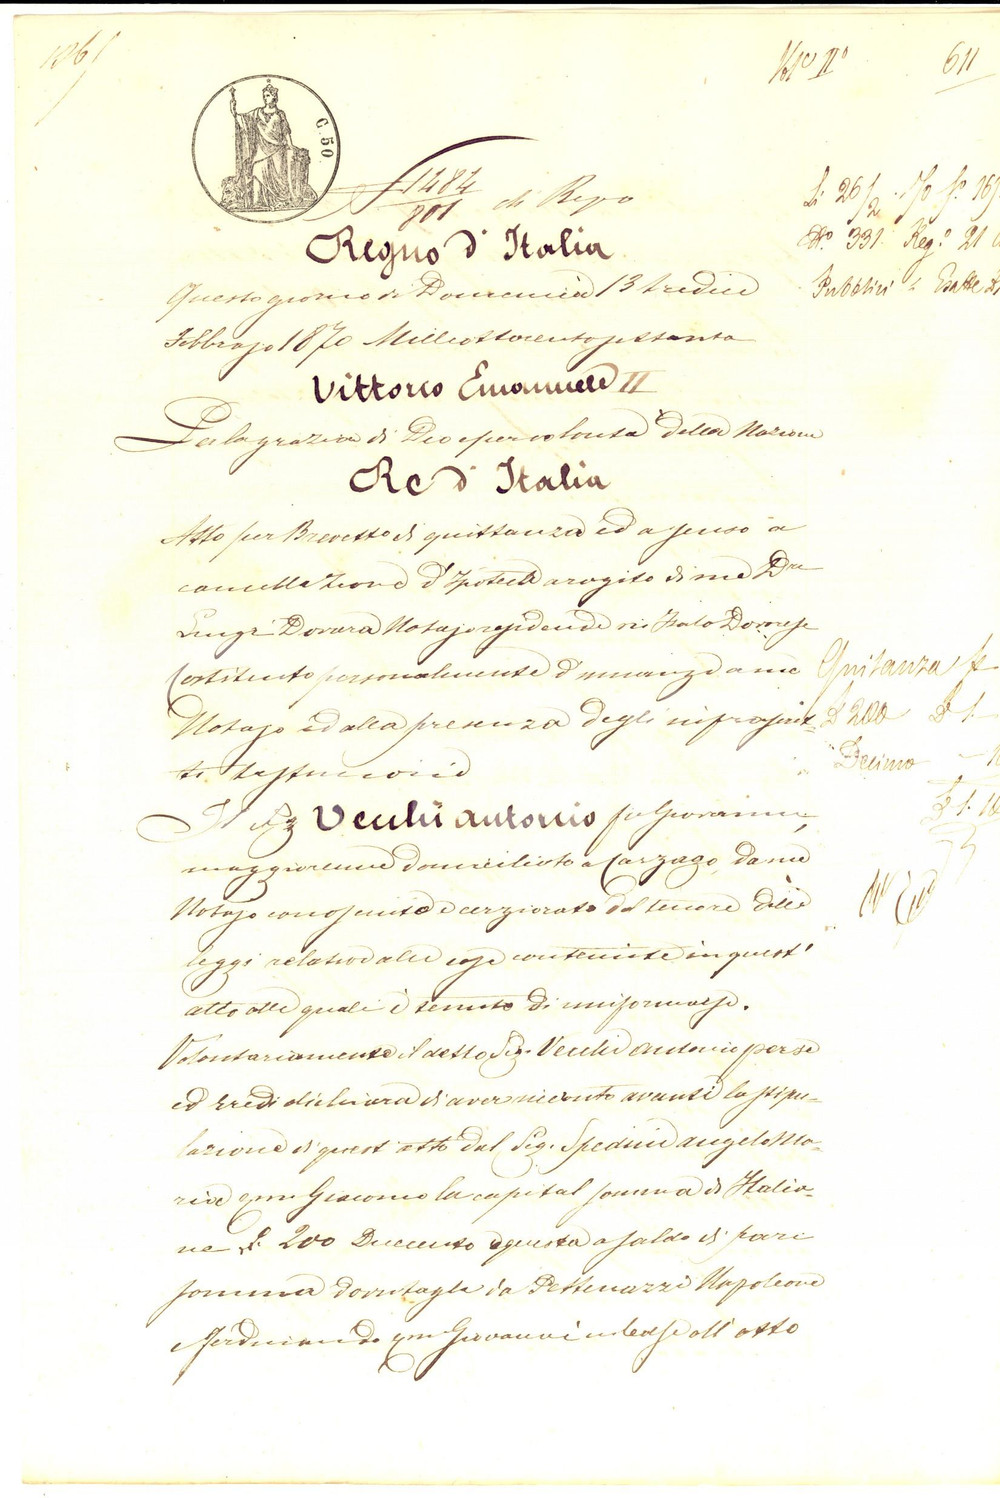 Vol° II°
611
C. 50.
1484
801
di Rep°
Regno d' Italia
Questo giorno di Domenica 13 tredici
Febbrajo 1870 Milleottocentosettanta
Vittorio Emanuele II
Per la grazia di Dio e per volontà della Nazione
Re d' Italia
Atto per Brevetto di quittanza ed assenso a
cancellazione d' Ipoteca a rogito di me Dre
Luigi Dovara Notajo residente in Isola Dovarese
Costituito personalmente d' innanzi a me
Notajo ed alla presenza degli infrascrit-
ti testimonii
Il Sig Vecchi Antonio fu Giovanni,
maggiorenne domiciliato a Carzago, da me
Notajo conosciuto e cerziorato del tenore delle
leggi relative alle cose contenute in quest'
atto alle quali è tenuto di uniformarsi.
Volontariamente il detto Sig. Vecchi Antonio per se
ed Eredi dichiara di aver ricevuto avanti la stipu-
lazione di quest' atto dal Sig. Spedini Angelo Ma-
ria qm Giacomo la capital somma di Italia-
ne £. 200 Duecento questa a saldo di pari
somma dovutagli da Pettenazzi Napoleone
e Ferdinando qm Giovanni in base all' atto
N° 331. Reg.° 21
Pubblici
Esatte
Quitanza
£ 200 £ 1.
Decimo
£ 1. 10